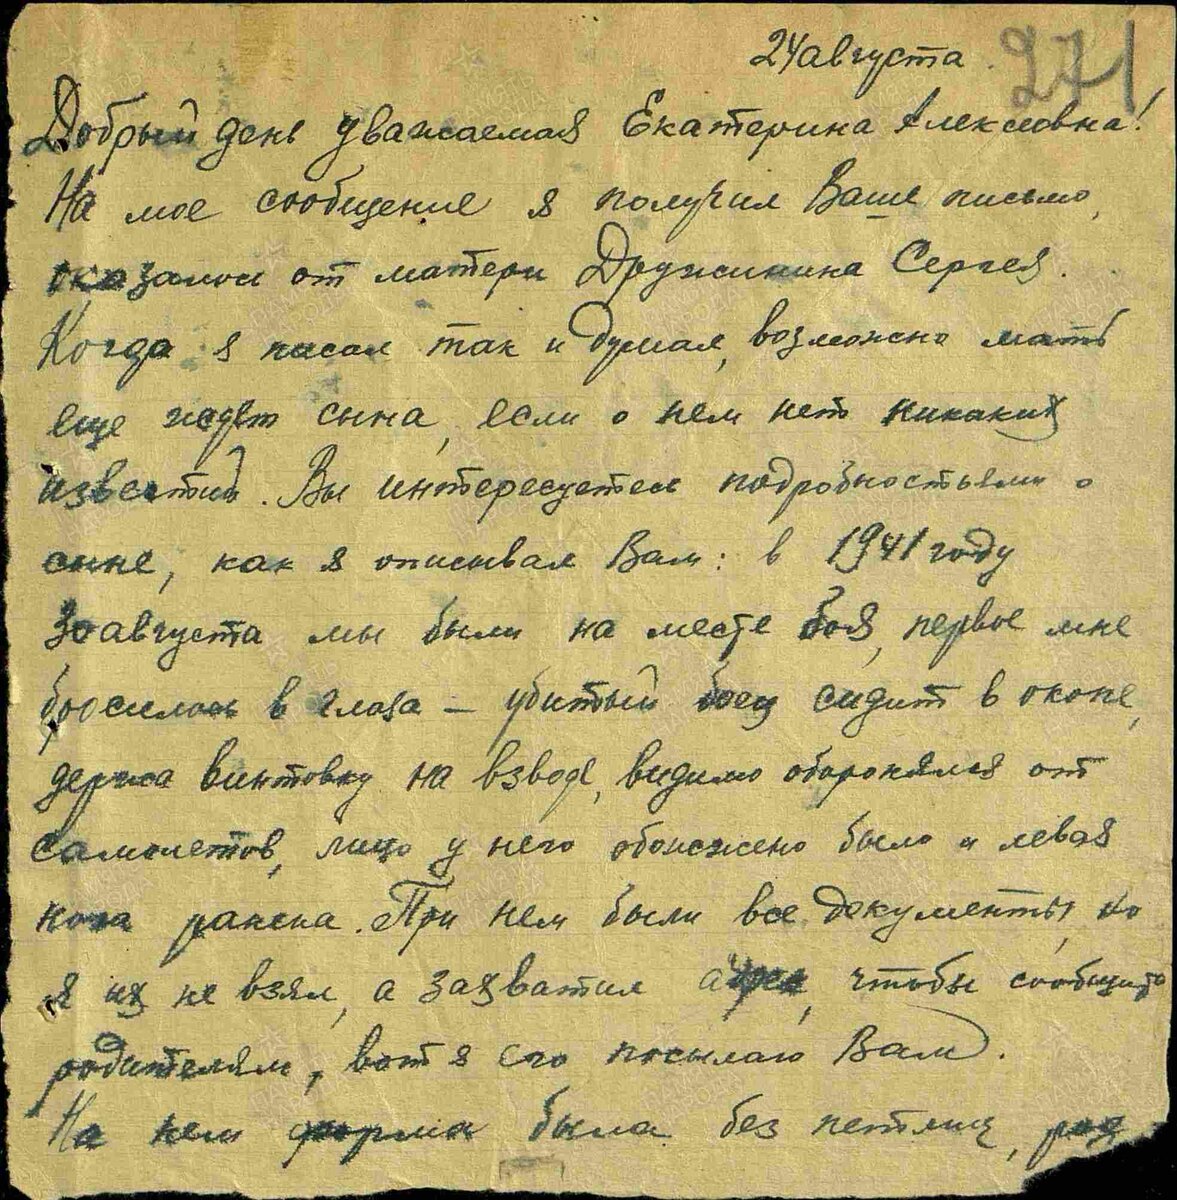 24 августа
271
Добрый день уважаемая Екатерина Алексеевна!
На мое сообщение я получил Ваше письмо,
оказалось от матери Дружинина Сергея.
Когда я писал так и думал, возможно мать
еще ждет сына, если о нем нет никаких
известий. Вы интересуетесь подробностьями о
сыне, как я описывал Вам: в 1941 году
30 августа мы были на месте боя, первое мне
бросилось в глаза – убитый боец сидит в окопе,
держа винтовку на взводе, видимо оборонялся от
самолетов, лицо у него обожжено было и левая
нога ранена. При нем были все документы, но
я их не взял, а захватил адрес, чтобы сообщить
родителям, вот я его посылаю Вам.
На нем форма была без петлиц,